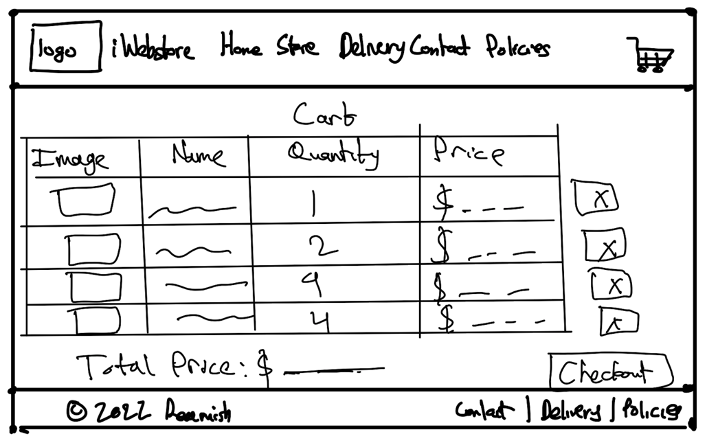 logo iWebstore Home Store Delivery Contact Policies
Cart
Image Name Quantity Price
1 $ X
2 $ X
9 $ X
4 $ X
Total Price: $ Checkout
© 2022 Contact | Delivery | Policies